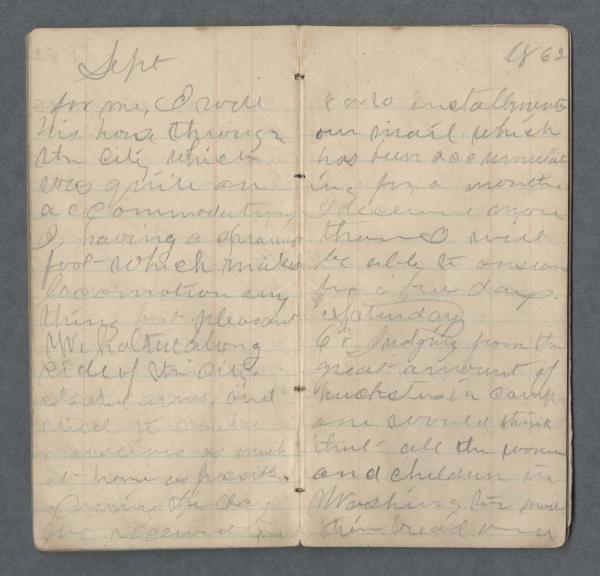 Sept
for me, I rode
his horse through
the city which
was quite an
accommodation,
I, having a sprained
foot which makes
locomotion any
thing but pleasant
We halted along
side of the city,
stacked arms, and
tried to make
ourselves as much
at home as possible.
During the day
we received in
1862
8 or 10 installments
our mail which
has been accumulat
ing for a month.
I received more
than I will
be able to answer
for a few days.
Saturday
6th Judging from the
great amount of
hucksters in camp
one would think
that all the women
and children in
Washington were
their bread